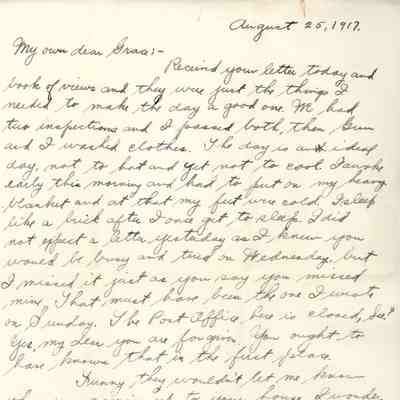 August 25, 1917.
My own dear Grace:-
Received your letter today and
book of views and they were just the things I
needed to make the day a good one. We had
two inspections and I passed both, then Gum
and I washed clothes. The day is an ideal
day, not to hot and yet not to cool. I awoke
early this morning and had to put on my heavy
blanket and at that my feet were cold. I sleep
like a brick after I once get to sleep. I did
not expect a letter yesterday as I knew you
would be busy and tired on Wednesday, but
I missed it just as you say you missed
mine. That must have been the one I wrote
on Sunday. The Post Office here is closed, See?
Yes, my dear you are forgiven. You ought to
have known that in the first place.
Funny they wouldn't let me know
up to your house I wonder